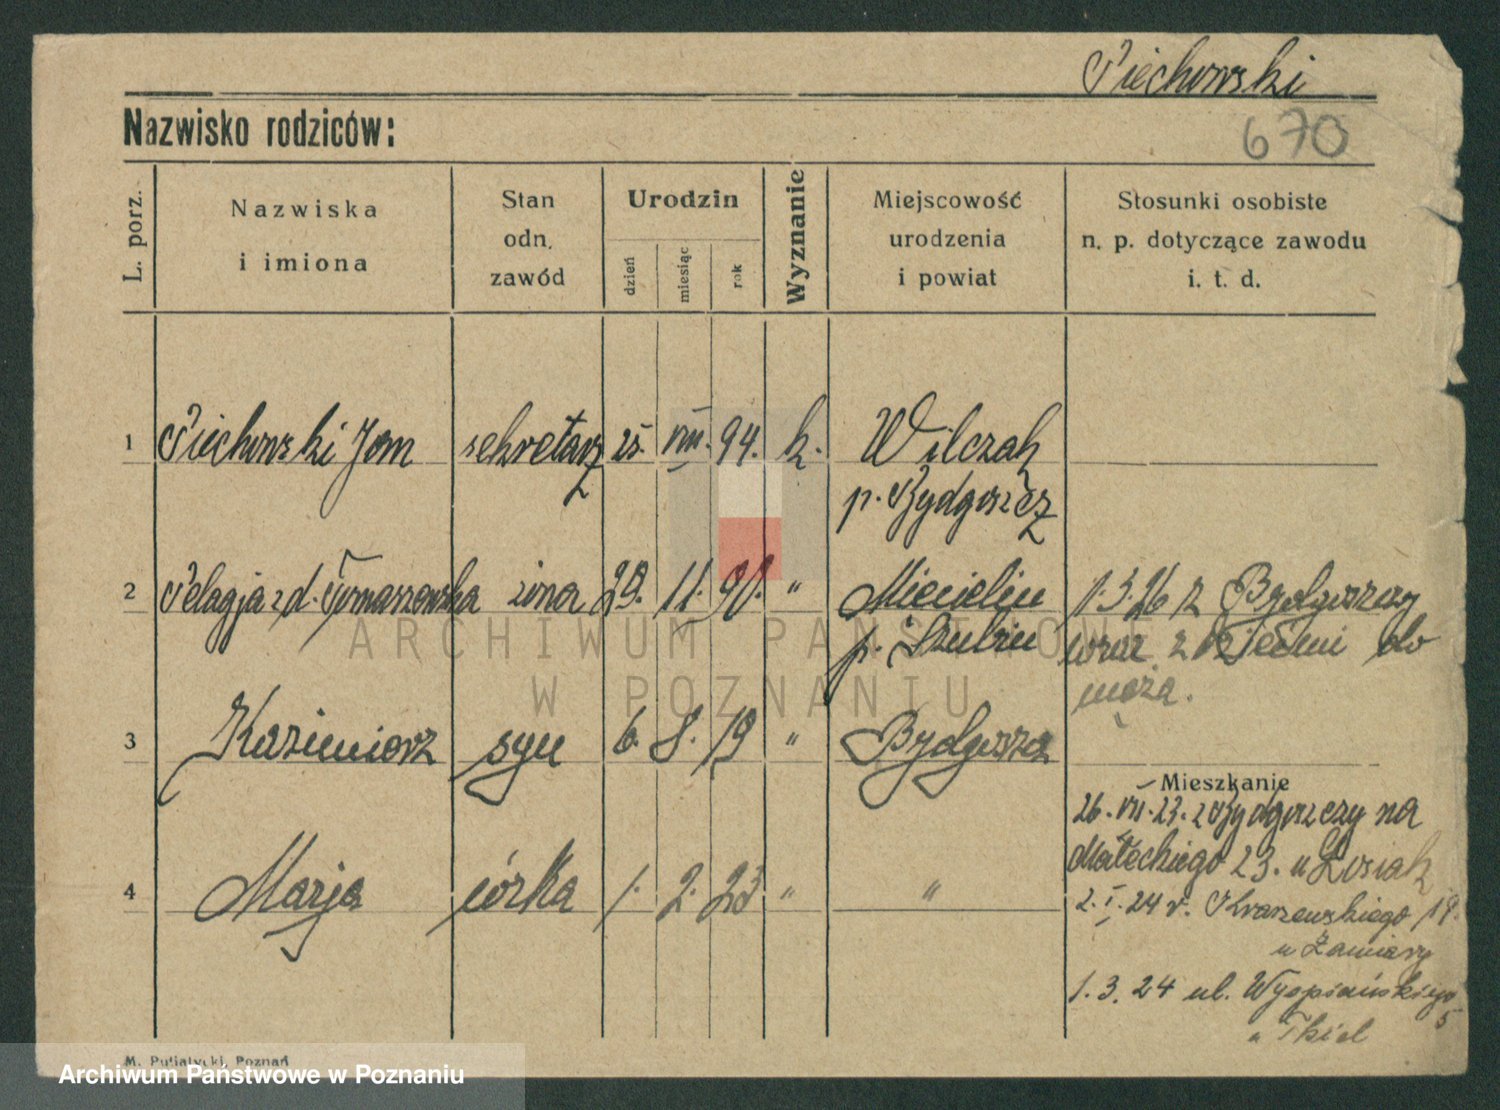 Piechowski
Nazwisko rodziców:
670
L. porz.
Nazwiska
i imiona
Stan
odn.
zawód
Urodzin
dzień
miesiąc
rok
Wyznanie
Miejscowość
urodzenia
i powiat
Stosunki osobiste
n. p. dotyczące zawodu
i. t. d.
1 Piechowski Jan sekretarz 25. VIII. 94. k. Wilczak
p. Bydgoszcz
2 Pelagja z d. Tomaszewska żona 29. 11. 90. " Miecielin
p. Szubin
1.3.26 z Bydgoszczy
wraz z dziećmi do
męża.
3 Kazimierz syn 6. 8. 19 " Bydgoszcz
4 Marja córka 1. 2. 23 " "
Mieszkanie
26. VII. 23. z Bydgoszczy na
Małeckiego 23. u Łosiak
2. I. 24 r. Kraszewskiego 19.
u
1. 3. 24 ul. Wyspiańskiego
5
u
M. Putiatycki, Poznań
ARCHIWUM PAŃSTWOWE
W POZNANIU
Archiwum Państwowe w Poznaniu